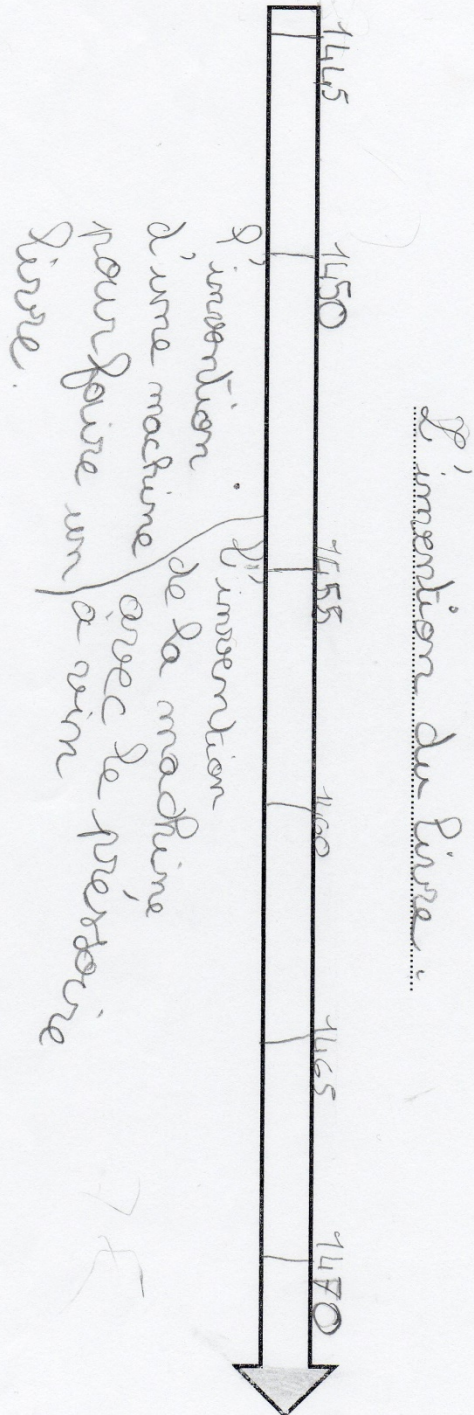 L'invention du livre.
1445
1450
1455
1460
1465
1470
l'invention
d'une machine
pour faire un
livre.
l'invention
de la machine
avec le pressoire
à vin